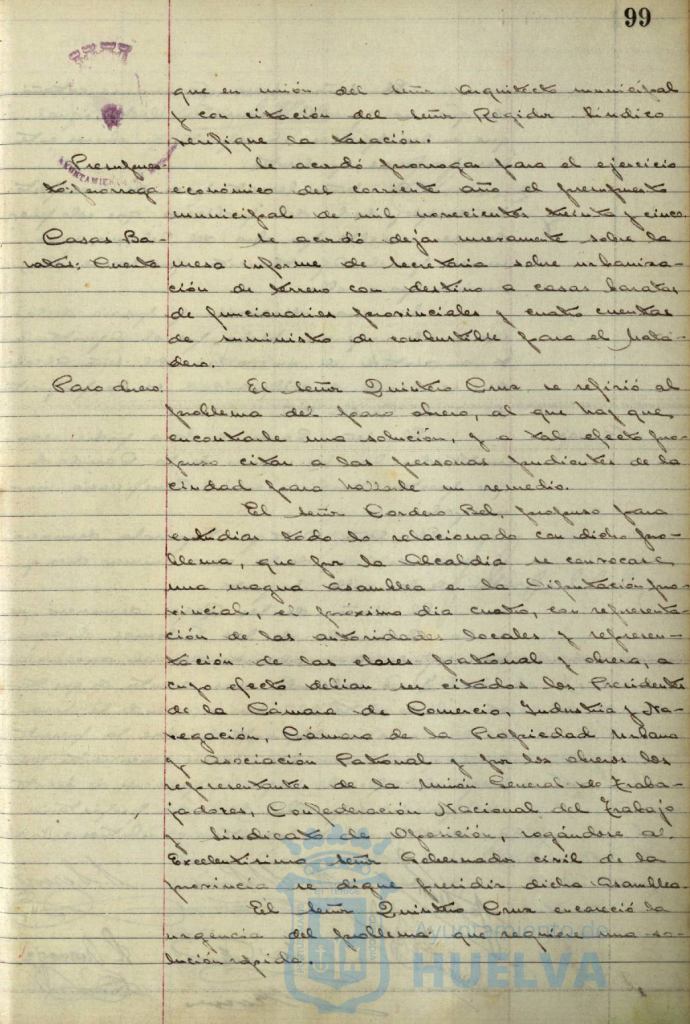 99
que en unión del señor Arquitecto municipal
y con citación del señor Regidor Síndico
verifique la tasación.
Presupues-
to: prórroga
AYUNTAMIENTO
Se acordó prorrogar para el ejercicio
económico del corriente año el presupuesto
municipal de mil novecientos treinta y cinco.
Casas Ba-
ratas: Cuenta
Se acordó dejar nuevamente sobre la
mesa informe de Secretaría sobre urbaniza-
ción de terreno con destino a casas baratas
de funcionarios provinciales y cuatro cuentas
de suministro de combustible para el Mata-
dero.
Paro obrero.
El señor Quintero Cruz se refirió al
problema del paro obrero, al que hay que
encontrarle una solución, y a tal efecto pro-
puso citar a las personas pudientes de la
ciudad para hallarle un remedio.
El señor Cordero Bel, propuso para
estudiar todo lo relacionado con dicho pro-
blema, que por la Alcaldía se convocara
una magna asamblea en la Diputación pro-
vincial, el próximo día cuatro, con representa-
ción de las autoridades locales y represen-
tación de las clases patronal y obrera, a
cuyo efecto debían ser citados los Presidentes
de la Cámara de Comercio, Industria y Na-
vegación, Cámara de la Propiedad Urbana
y Asociación Patronal y por los obreros los
representantes de la Unión General de Traba-
jadores, Confederación Nacional del Trabajo
y Sindicato de Oposición, rogándose al
Excelentísimo señor Gobernador civil de la
provincia se digne presidir dicha Asamblea.
El señor Quintero Cruz encareció la
urgencia del problema que requiere una so-
lución rápida.
HUELVA